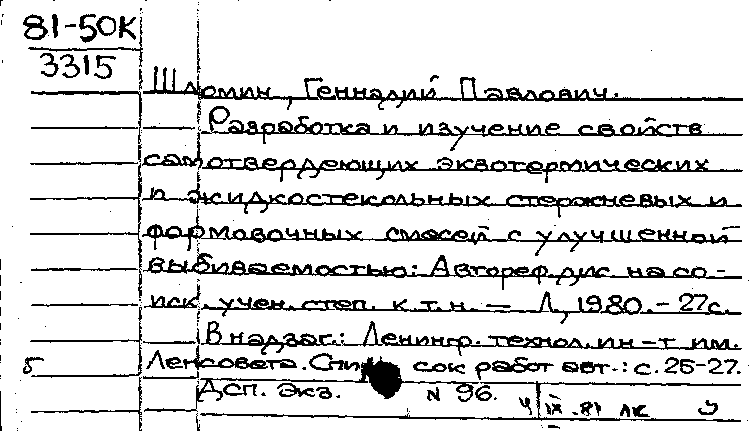 81-50К
3315
Шломин, Геннадий Павлович.
Разработка и изучение свойств
самотвердеющих экзотермических
п жидкостекольных стержневых и
формовочных смесей с улучшенной
выбиваемостью: Автореф. дис. на со-
иск. учен. степ. к.т.н. — Л, 1980. - 27с.
В надзаг.: Ленингр. технол. ин-т им.
б Ленсовета. Спи сок работ авт.: с. 25-27.
ДСП. Экз. N 96. 4/IX.81 ЛК